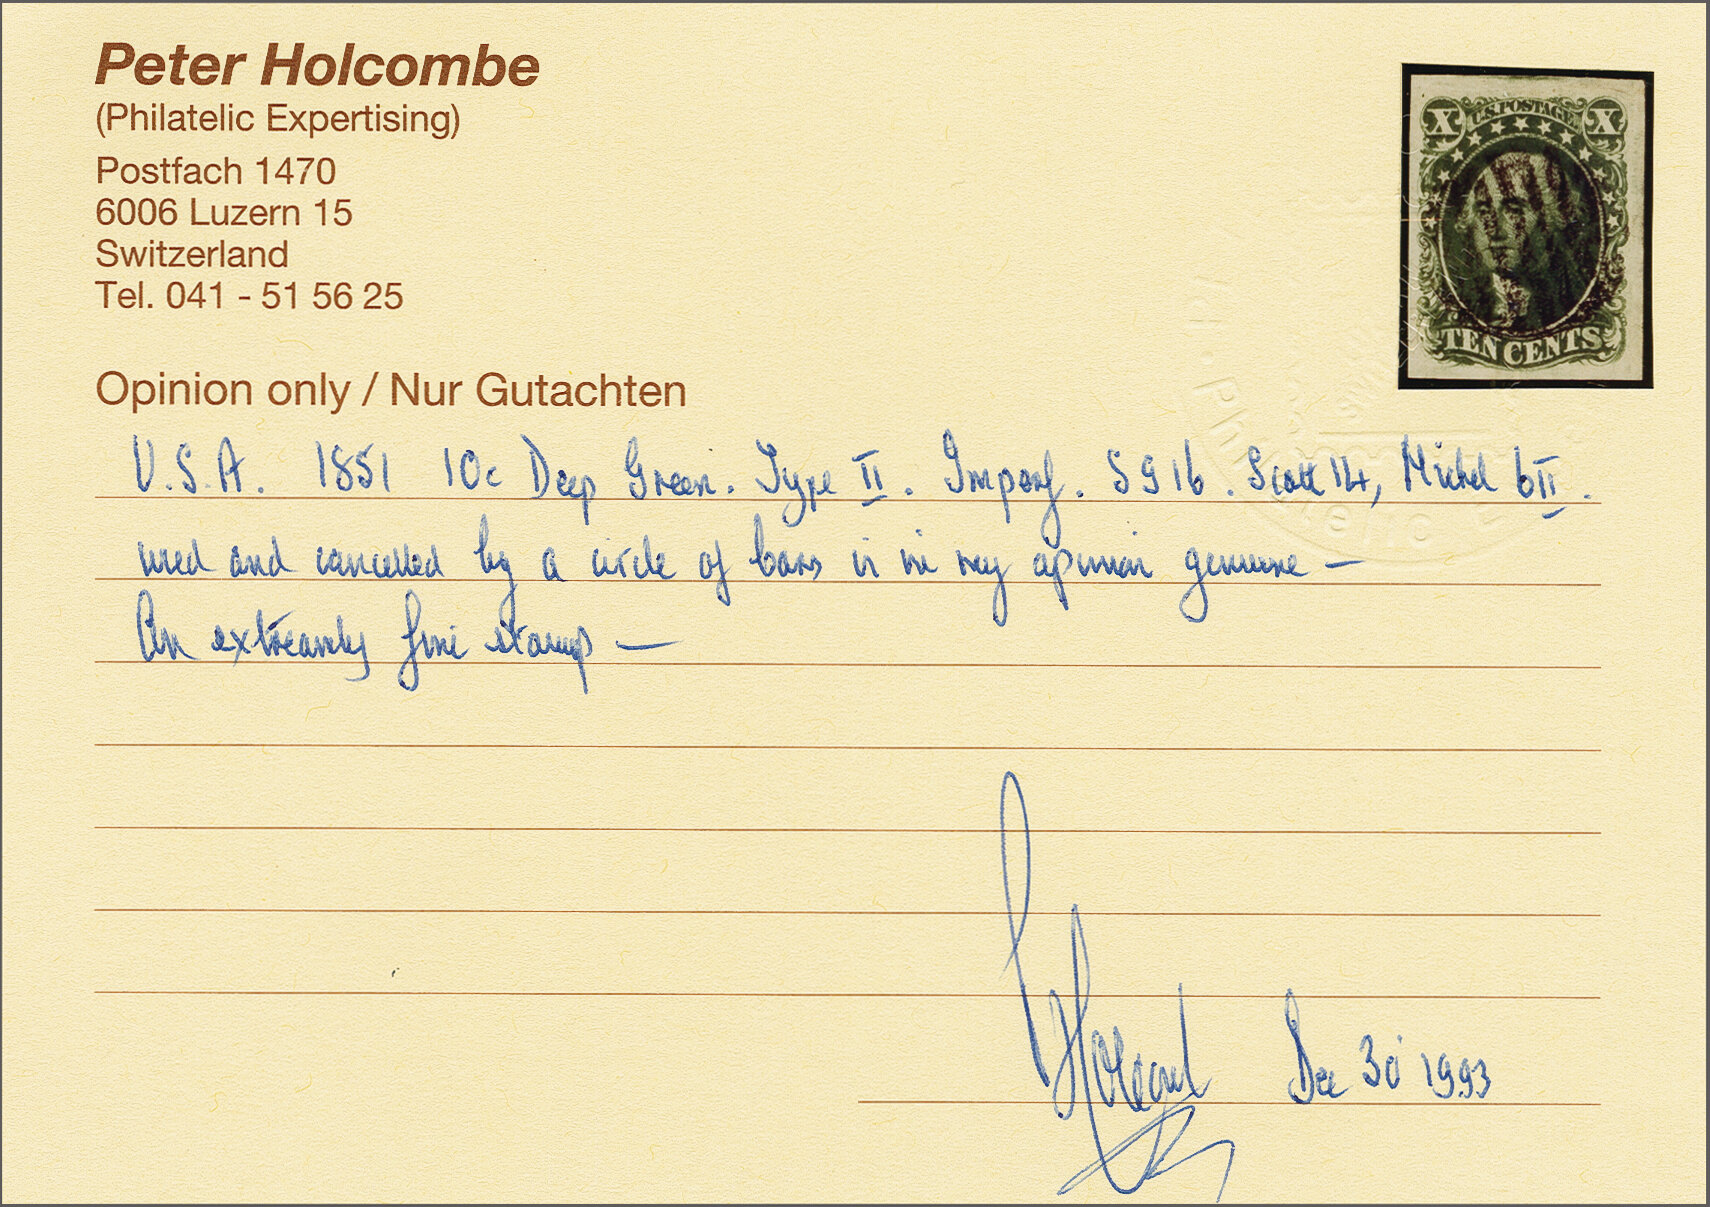 Peter Holcombe
(Philatelic Expertising)
Postfach 1470
6006 Luzern 15
Switzerland
Tel. 041 - 51 56 25
X U.S. POSTAGE X
TEN CENTS
Opinion only / Nur Gutachten
U.S.A. 1851 10c Deep Green. Type II. Imperf. SG 16. Scott 14, Michel 6II.
used and cancelled by a circle of bars is in my opinion genuine –
An extreamly fine stamp –
Holcombe Dec 30 1993